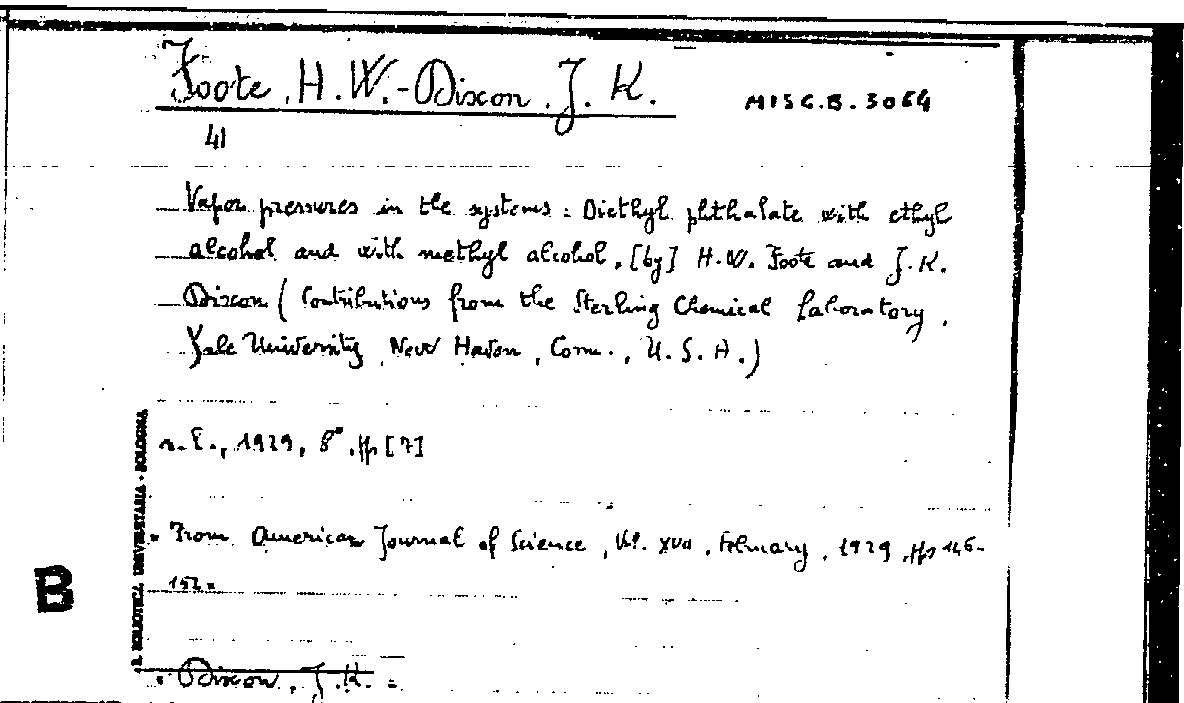 Foote, H.W.-Dixon, J. K.
MISC.B. 3064
41
Vapor pressures in the systems: Diethyl phthalate with ethyl
alcohol and with methyl alcohol, [by] H.W. Foote and J.K.
Dixon (Contributions from the Sterling Chemical Laboratory,
Yale University, New Haven, Conn., U.S.A.)
n.l., 1929, 8°, pp [7]
From American Journal of Science, Vol. XVII, February, 1929, pp 146-
152=
Dixon, J.K. =
B
R. BIBLIOTECA UNIVERSITARIA - BOLOGNA